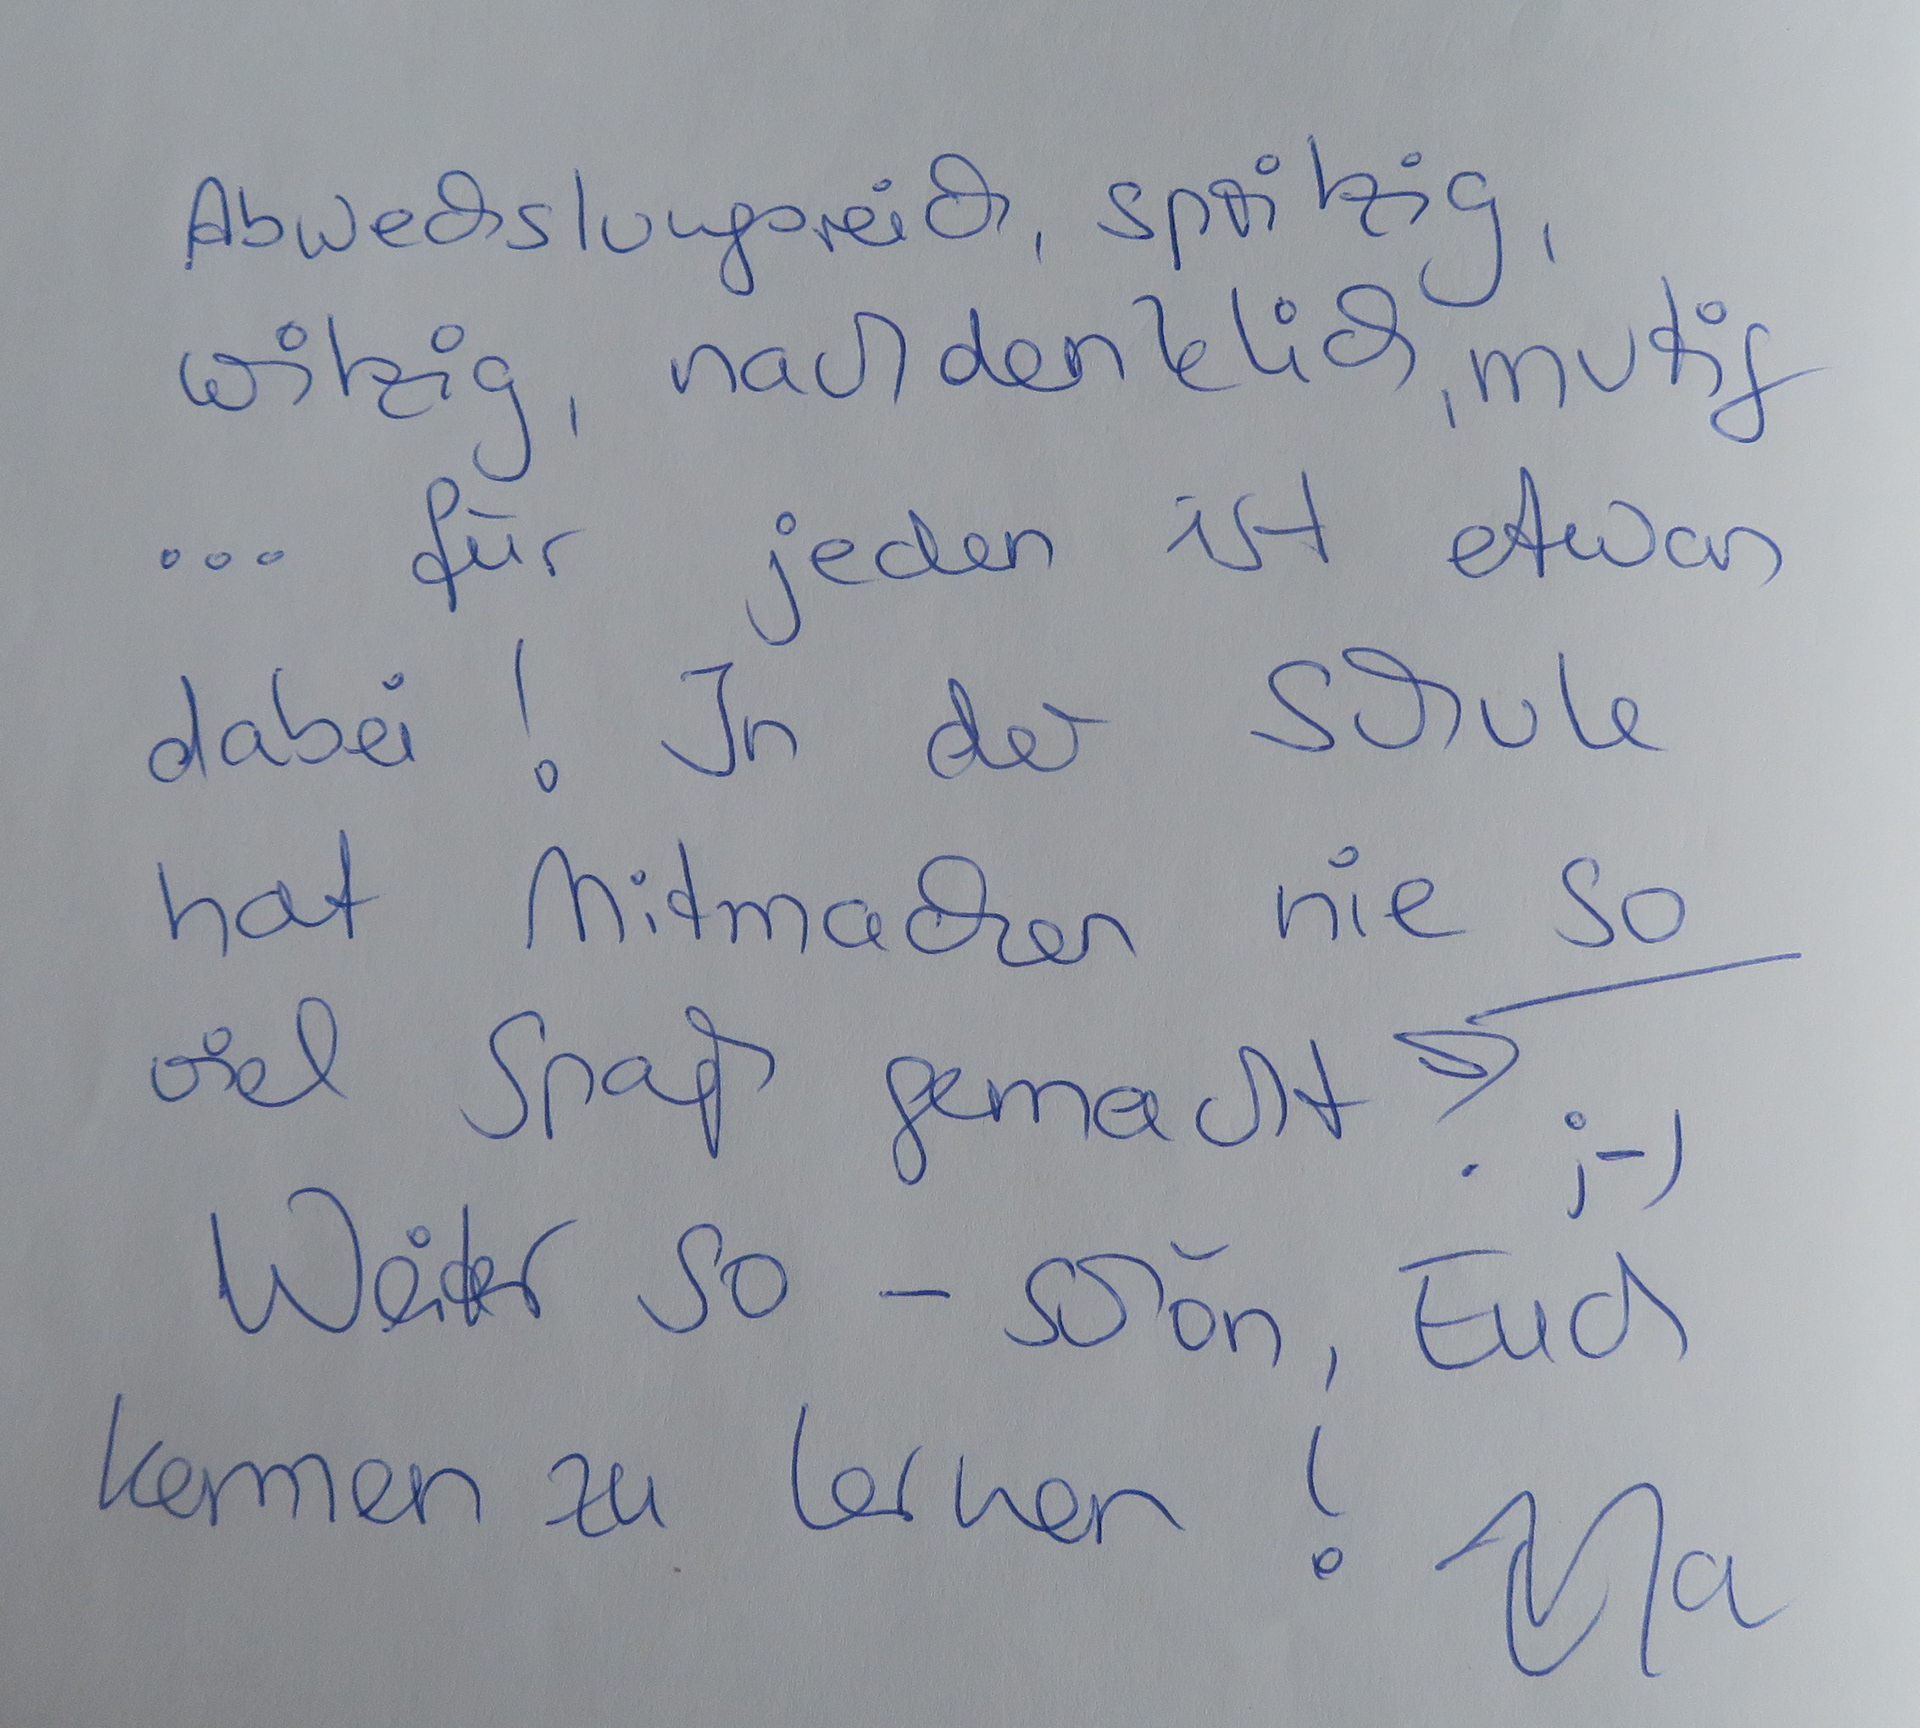 Abwechslungsreich, spritzig,
witzig, nachdenklich, mutig
... für jeden ist etwas
dabei! In der Schule
hat Mitmachen nie so
viel Spaß gemacht ? ;-)
Weiter so - schön, Euch
kennen zu lernen!